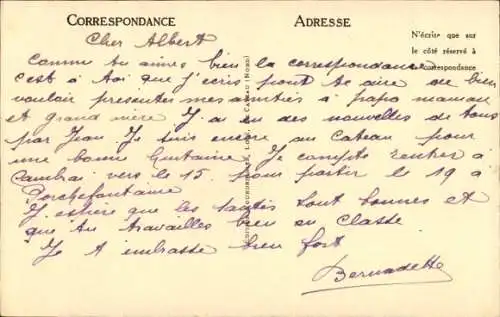 CORRESPONDANCE
ADRESSE
N'écrire que sur
le côté réservé à
la correspondance
Cher Albert
Comme tu aimes bien la correspondance
c'est à toi que j'écris pour te dire de bien
vouloir présenter mes amitiés à papa maman
et grand mère J'ai eu des nouvelles de tous
par Jean Je suis encore au Cateau pour
une bonne quitaine Je compte rentrer à
Cambrai vers le 15 pour partir le 19 à
Porchefontaine
J'espère que les santés sont bonnes et
que tu travailles bien en classe
Je t'embrasse bien fort
Bernadette
CATEAU (NORD)